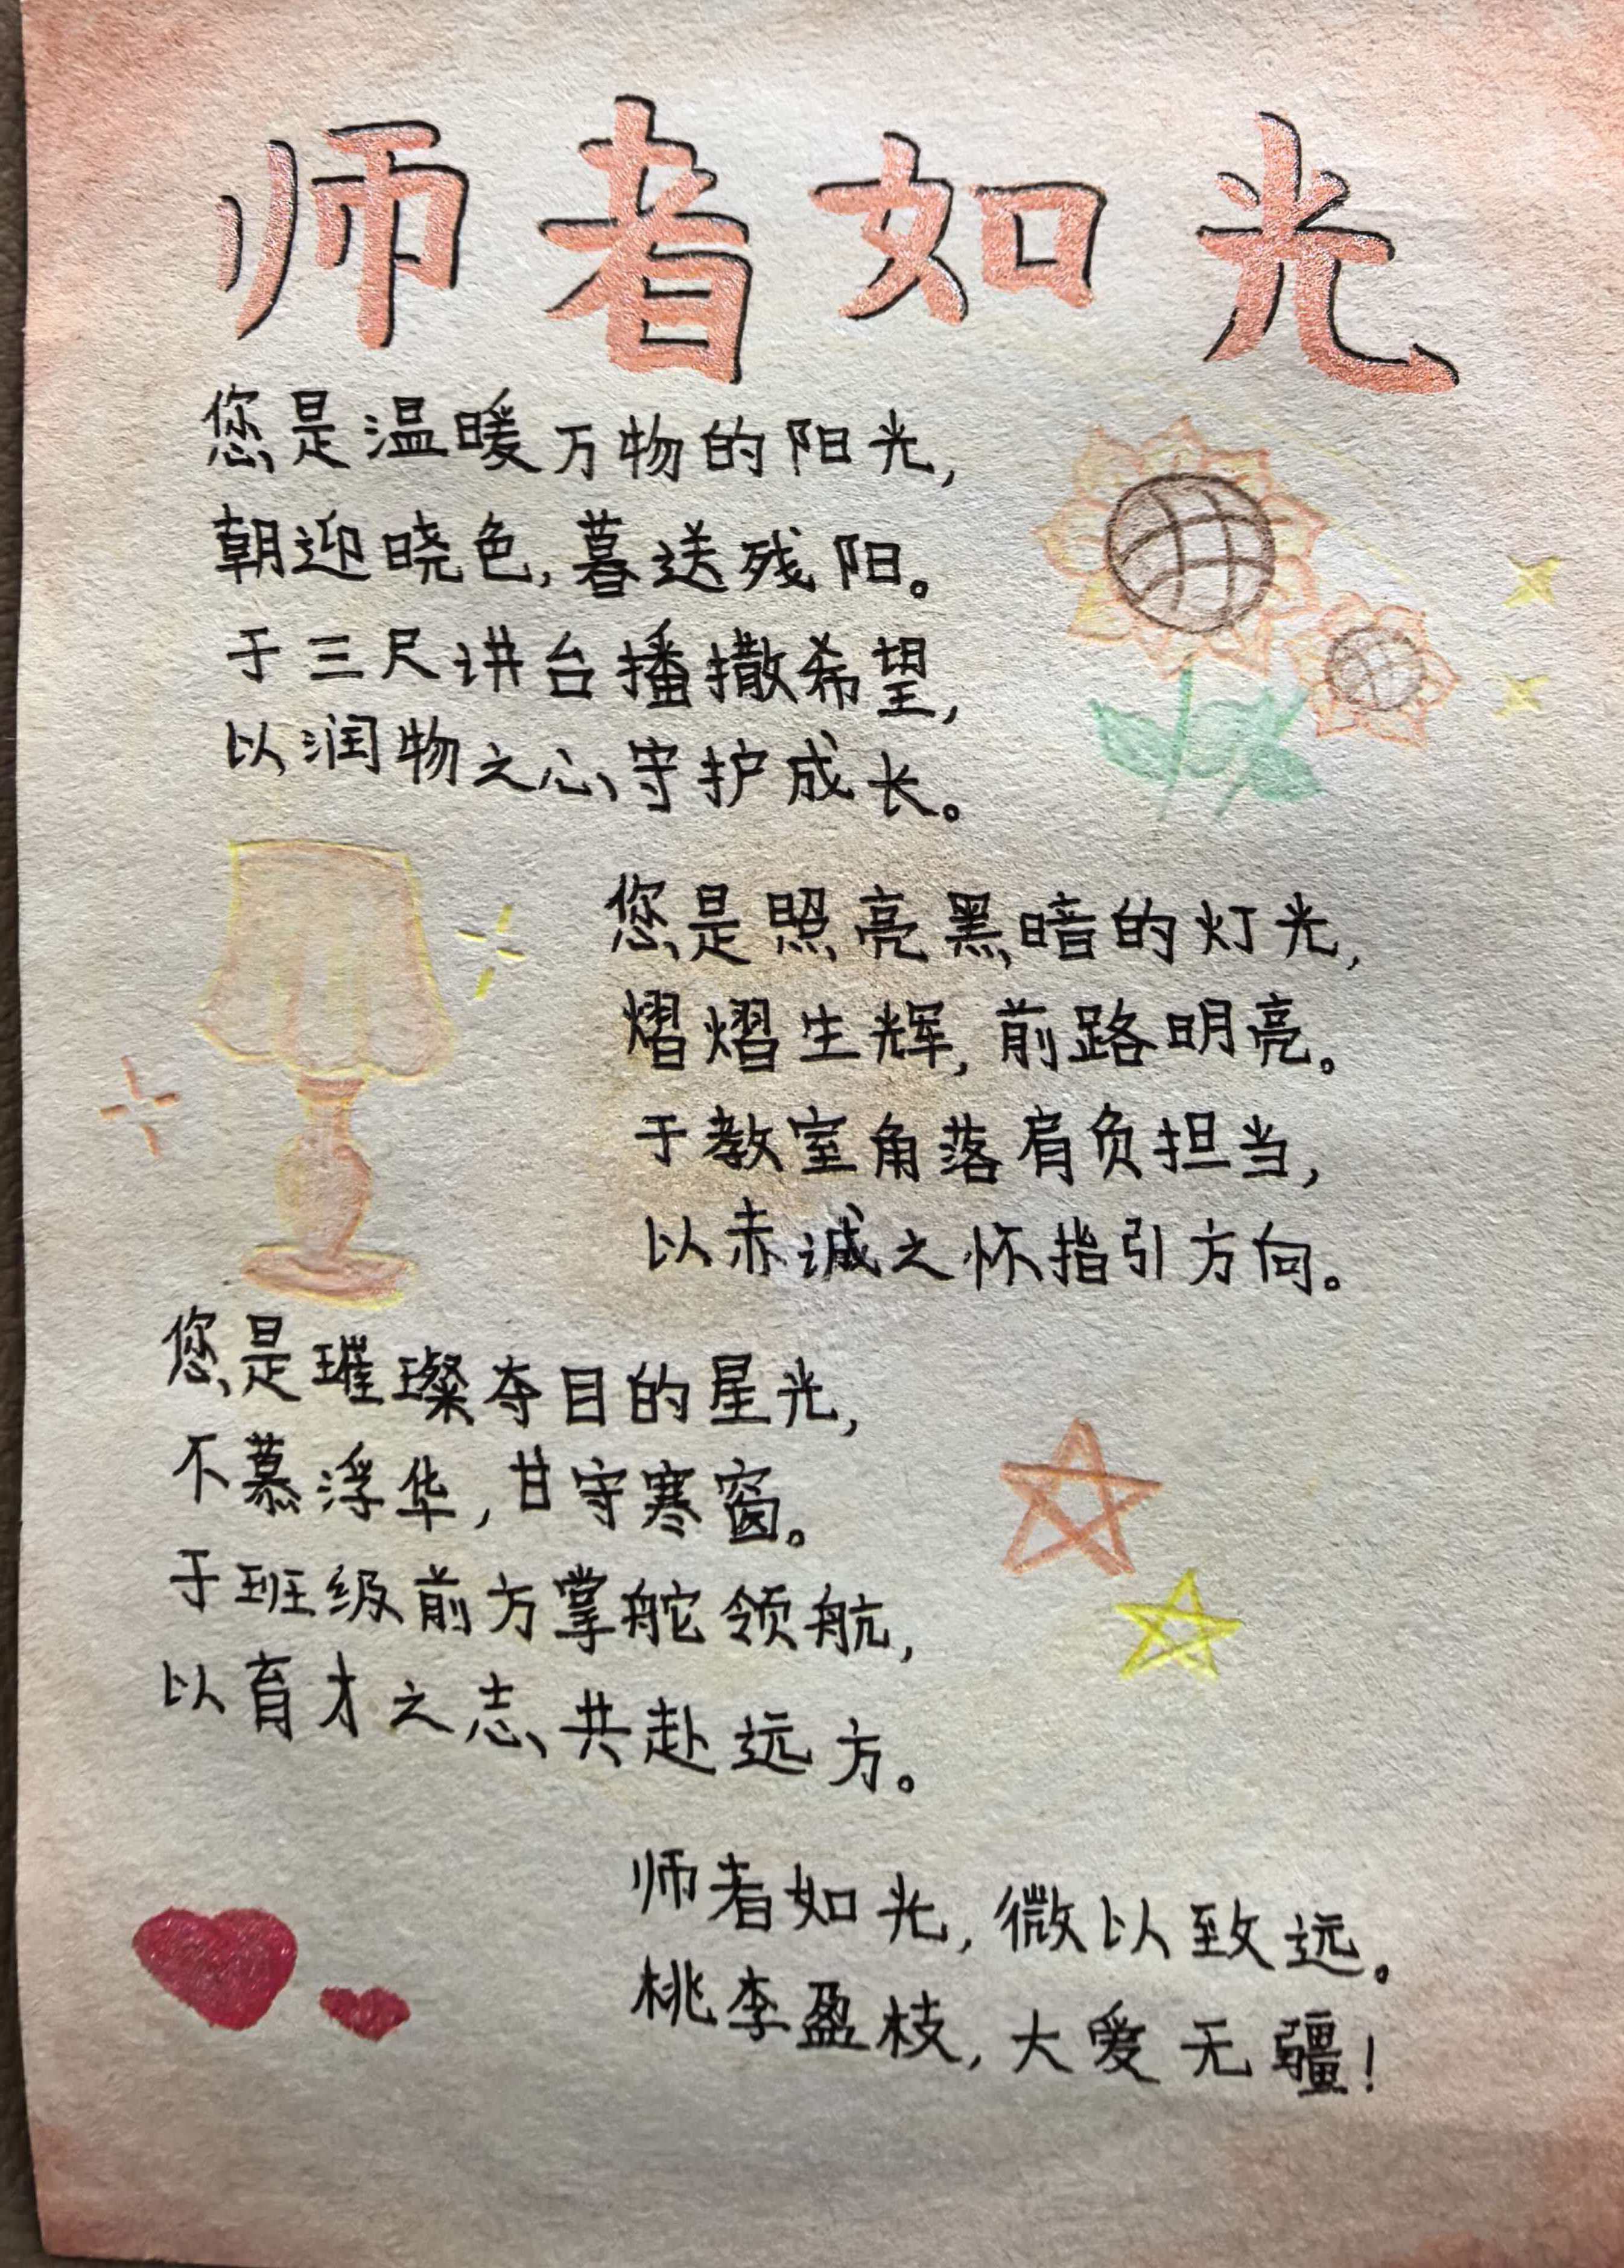 师者如光
您是温暖万物的阳光,
朝迎晓色,暮送残阳。
于三尺讲台播撒希望,
以润物之心守护成长。
您是照亮黑暗的灯光,
熠熠生辉,前路明亮。
于教室角落肩负担当,
以赤诚之怀指引方向。
您是璀璨夺目的星光,
不慕浮华,甘守寒窗。
于班级前方掌舵领航,
以育才之志共赴远方。
师者如光,微以致远。
桃李盈枝,大爱无疆!